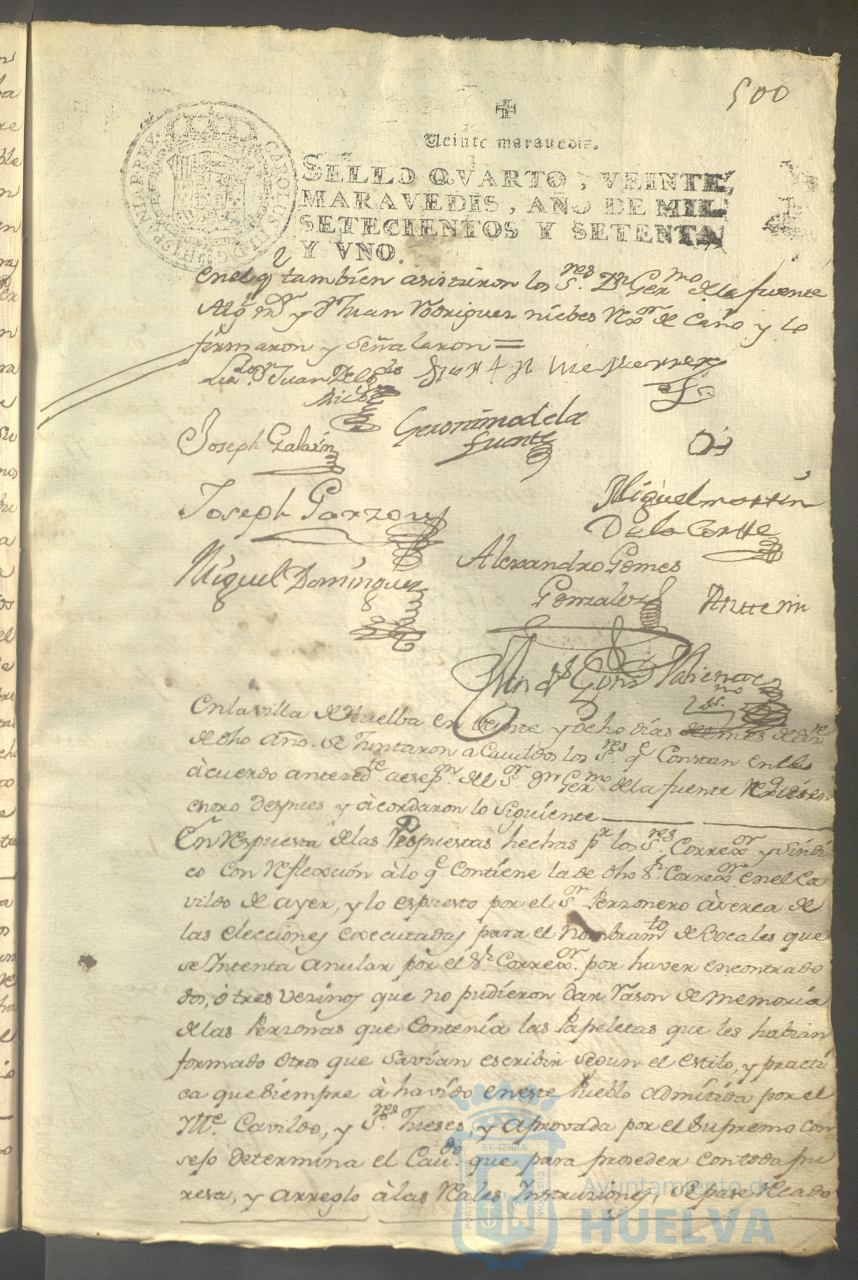 500
Veinte maravedis.
SELLO QVARTO, VEINTE
MARAVEDIS, AÑO DE MIL
SETECIENTOS Y SETENTA
Y VNO.
CAROLUS III D G HISPANIAR REX
en el q tambien asistieron los S.res Dn Ger.mo de la fuente
Alg.l m.or y Dn Juan Rodriguez niebes de Caño y lo
firmaron y Señalaron =
Juan
Joseph Galain
Geronimo de la
fuente
Joseph Garzon
Miguel martin
De la Cortte
Miguel Dominguez
Alexandro Gomes
Gonzalez
Antte mi
En la villa de Huelba en veinte y ocho dias de
de dho año. se Juntaron a Cauildo los S.res q Constan en el
acuerdo anteced.te a esep.n del S.or Dn Ger.mo de la fuente
entro despues y acordaron lo siguiente
En respuesta de las Respuestas hechas p.r los S.res Correx.or y sindi
co con reflexción à lo q contiene la de dho S.r Correx.or en el ca
vildo de ayer, y lo espuesto por el S.or Perzonero àserca de
las elecciones executadas para el nombram.to de vocales que
se Intenta anular por el S.r Correx.or por haver encontrado
dos, ò tres vezinos que no pudieron dar rason de memoria
de las Perzonas que contenia las Papeletas que les habian
formado otros que savian escribir segun el estilo, y practi
ca que siempre à havido en este Pueblo admitida por el
Ill.e Cavildo, y S.res Jueses y aprovada por el Supremo con
sejo determina el Cau.do que para proseder con toda pu
resa, y arreglo à las Reales Instruziones se pase recado
Ayuntamiento de
HUELVA